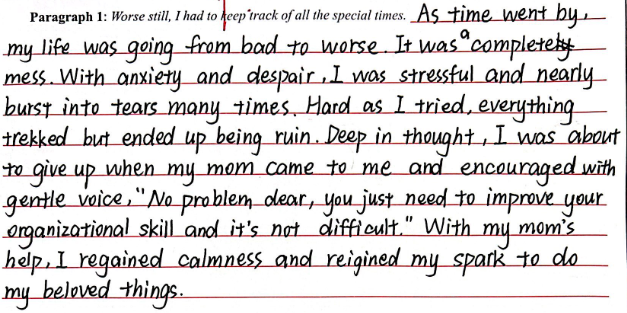 Paragraph 1: Worse still, I had to keep track of all the special times. As time went by,
my life was going from bad to worse. It was a complete
mess. With anxiety and despair, I was stressful and nearly
burst into tears many times. Hard as I tried, everything
trekked but ended up being ruin. Deep in thought, I was about
to give up when my mom came to me and encouraged with
gentle voice, "No problem dear, you just need to improve your
organizational skill and it's not difficult." With my mom's
help, I regained calmness and reigined my spark to do
my beloved things.